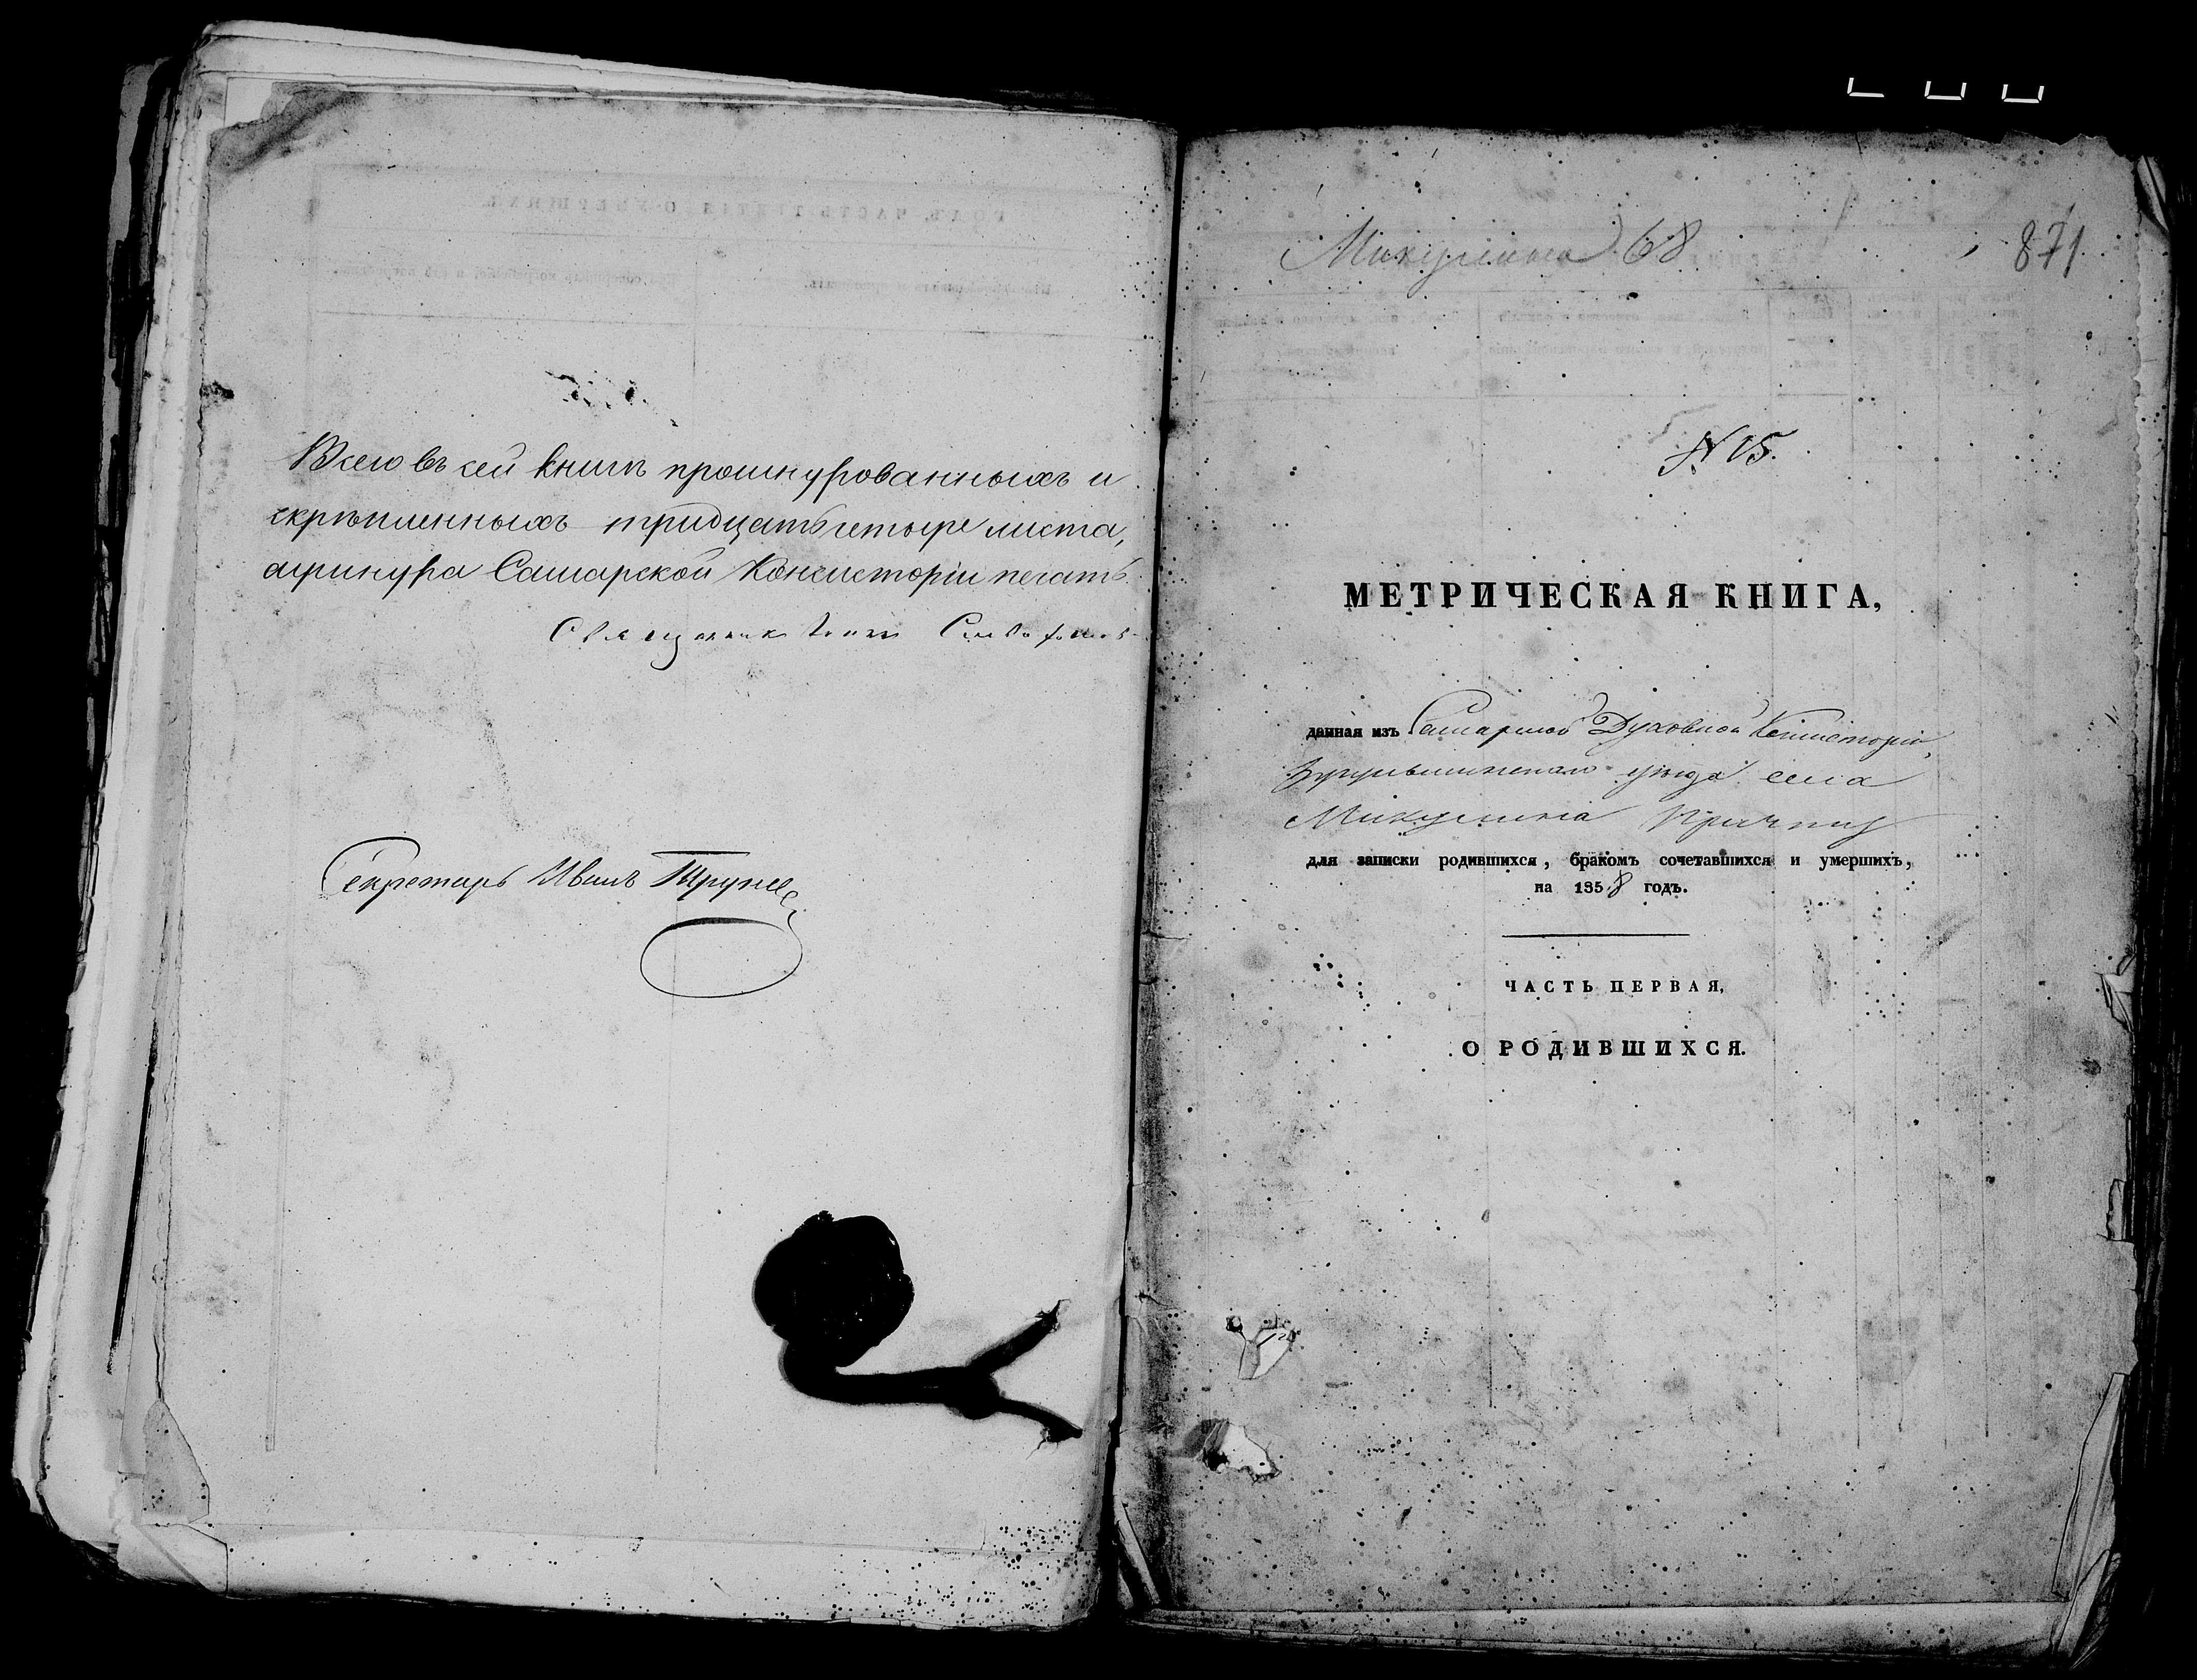 Всего въ сей книгѣ прошнурованныхъ и
скрѣпленныхъ тридцать четыре листа,
а у шнура Самарской Консисторіи печать.
Священникъ
Секретарь Иванъ
Микулина 68
871
N 15.
МЕТРИЧЕСКАЯ КНИГА,
данная изъ Самарской Духовной Консисторіи,
Бугульминскаго уѣзда села
Микулина Причту
для записки родившихся, бракомъ сочетавшихся и умершихъ,
на 1858 годъ.
ЧАСТЬ ПЕРВАЯ,
О РОДИВШИХСЯ.